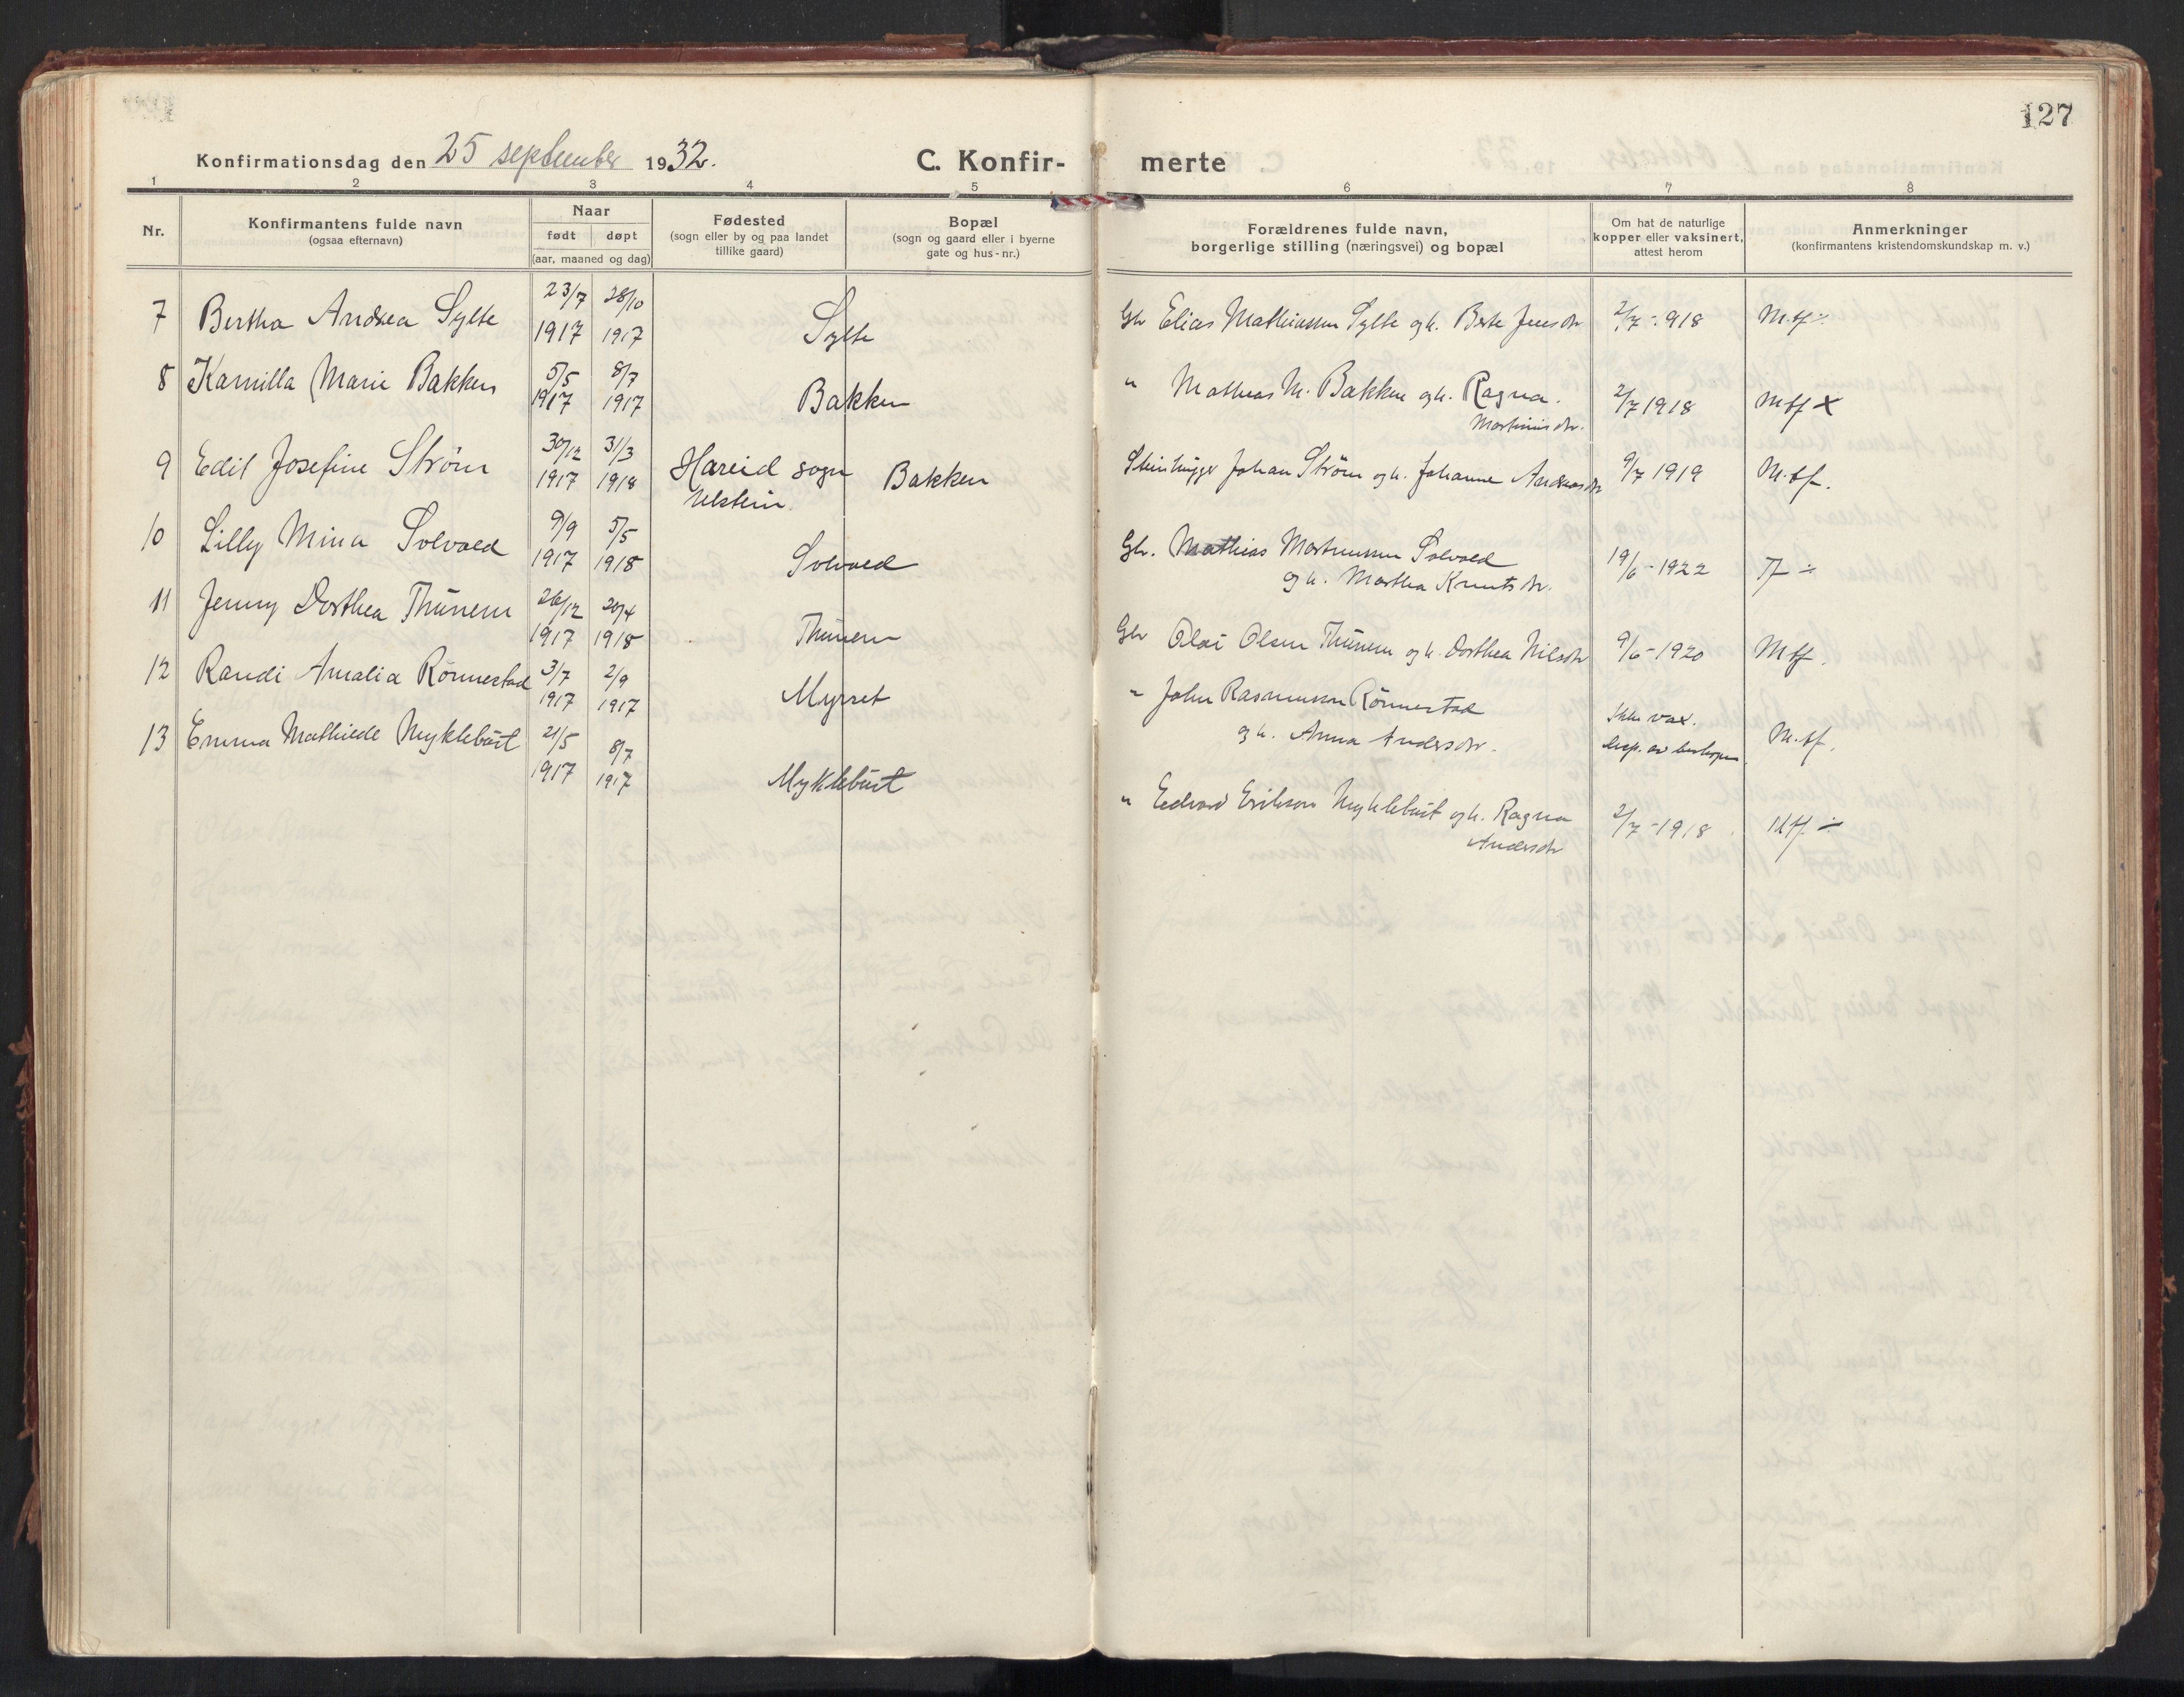 127
Konfirmationsdag den 25 september 1932.
C. Konfir-
merte
1 2 3 4 5 6 7 8
Nr.
Konfirmantens fulde navn
(ogsaa efternavn)
Naar
født døpt
(aar, maaned og dag)
Fødested
(sogn eller by og paa landet
tillike gaard)
Bopæl
(sogn og gaard eller i byerne
gate og hus-nr.)
Forældrenes fulde navn,
borgerlige stilling (næringsvei) og bopæl
Om hat de naturlige
kopper eller vaksinert,
attest herom
Anmerkninger
(konfirmantens kristendomskundskap m. v.)
7 Bertha Andrea Sylte 23/7 1917 28/10 1917 Sylte Gbr Elias Mathiassen Sylte og h. Berte Jensdr 2/7-918 M.tf ÷
8 Kamilla Marie Bakken 5/5 1917 8/7 1917 Bakken " Mathias M. Bakken og h. Ragna
Martinisdr. 2/7 1918 M tf x
9 Edit Josefine Strøm 30/12 1917 31/3 1918 Hareid sogn
Ulstein. Bakken Steinhugger Johan Strøm og h. Johanne Andreasdr 9/7 1919 M.tf.
10 Lilly Mina Solvold 9/9 1917 5/5 1918 Solvold Gbr. Mathias Martinussen Solvold
og h. Martha Knutsdr. 19/6-1922 Tf ÷
11 Jenny Dorthea Thunem 26/12 1917 20/4 1918 Thunem Gbr Olai Olsen Thunem og h. Dorthea Nilsdr 9/6-1920 M tf.
12 Randi Amalia Rønnestad 3/7 1917 2/9 1917 Myrset " John Rasmussen Rønnestad
og h. Anna Andersdr. Ikke vax.
disp. av biskopen M.tf.
13 Emma Mathilde Myklebust 21/5 1917 8/7 1917 Myklebust " Edvard Eriksen Myklebust og h. Ragna
Andersdr 2/7-1918 M tf. ÷